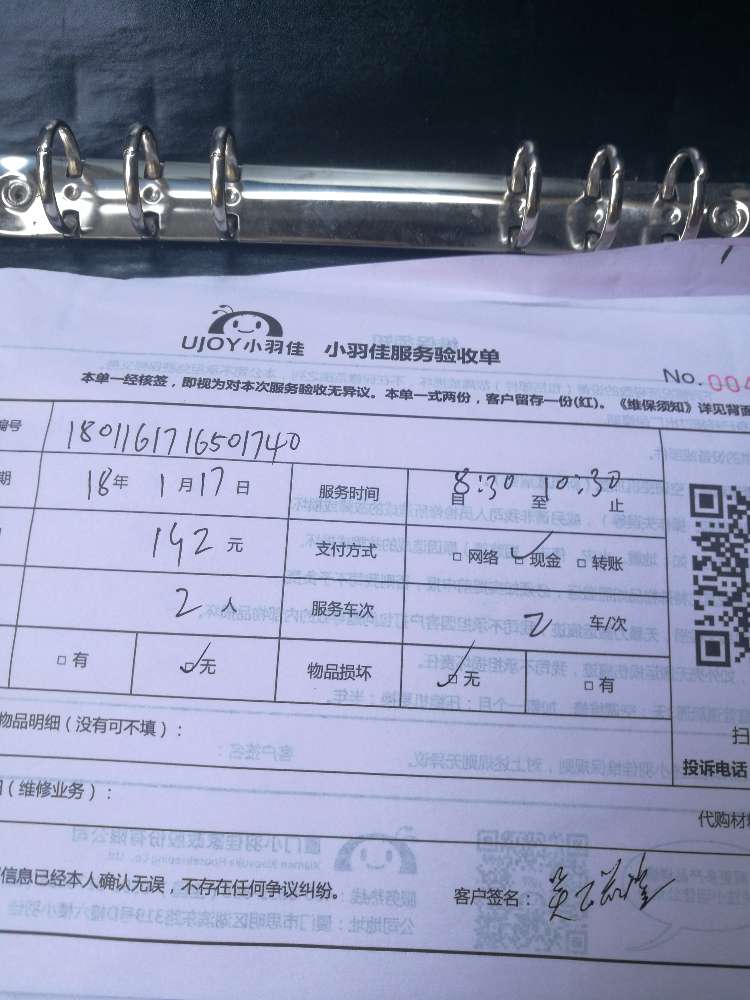 UJOY小羽佳 小羽佳服务验收单
No.004
本单一经核签，即视为对本次服务验收无异议。本单一式两份，客户留存一份(红)。《维保须知》详见背面
编号 1801161716501740
期 18年 1月17日 服务时间 8:30 自 至 10:30 止
142元 支付方式 □网络 ☑现金 □转账
2人 服务车次 2 车/次
□有 ☑无 物品损坏 ☑无 □有
物品明细（没有可不填）：
扫
投诉电话
（维修业务）：
代购材
信息已经本人确认无误，不存在任何争议纠纷。
客户签名：